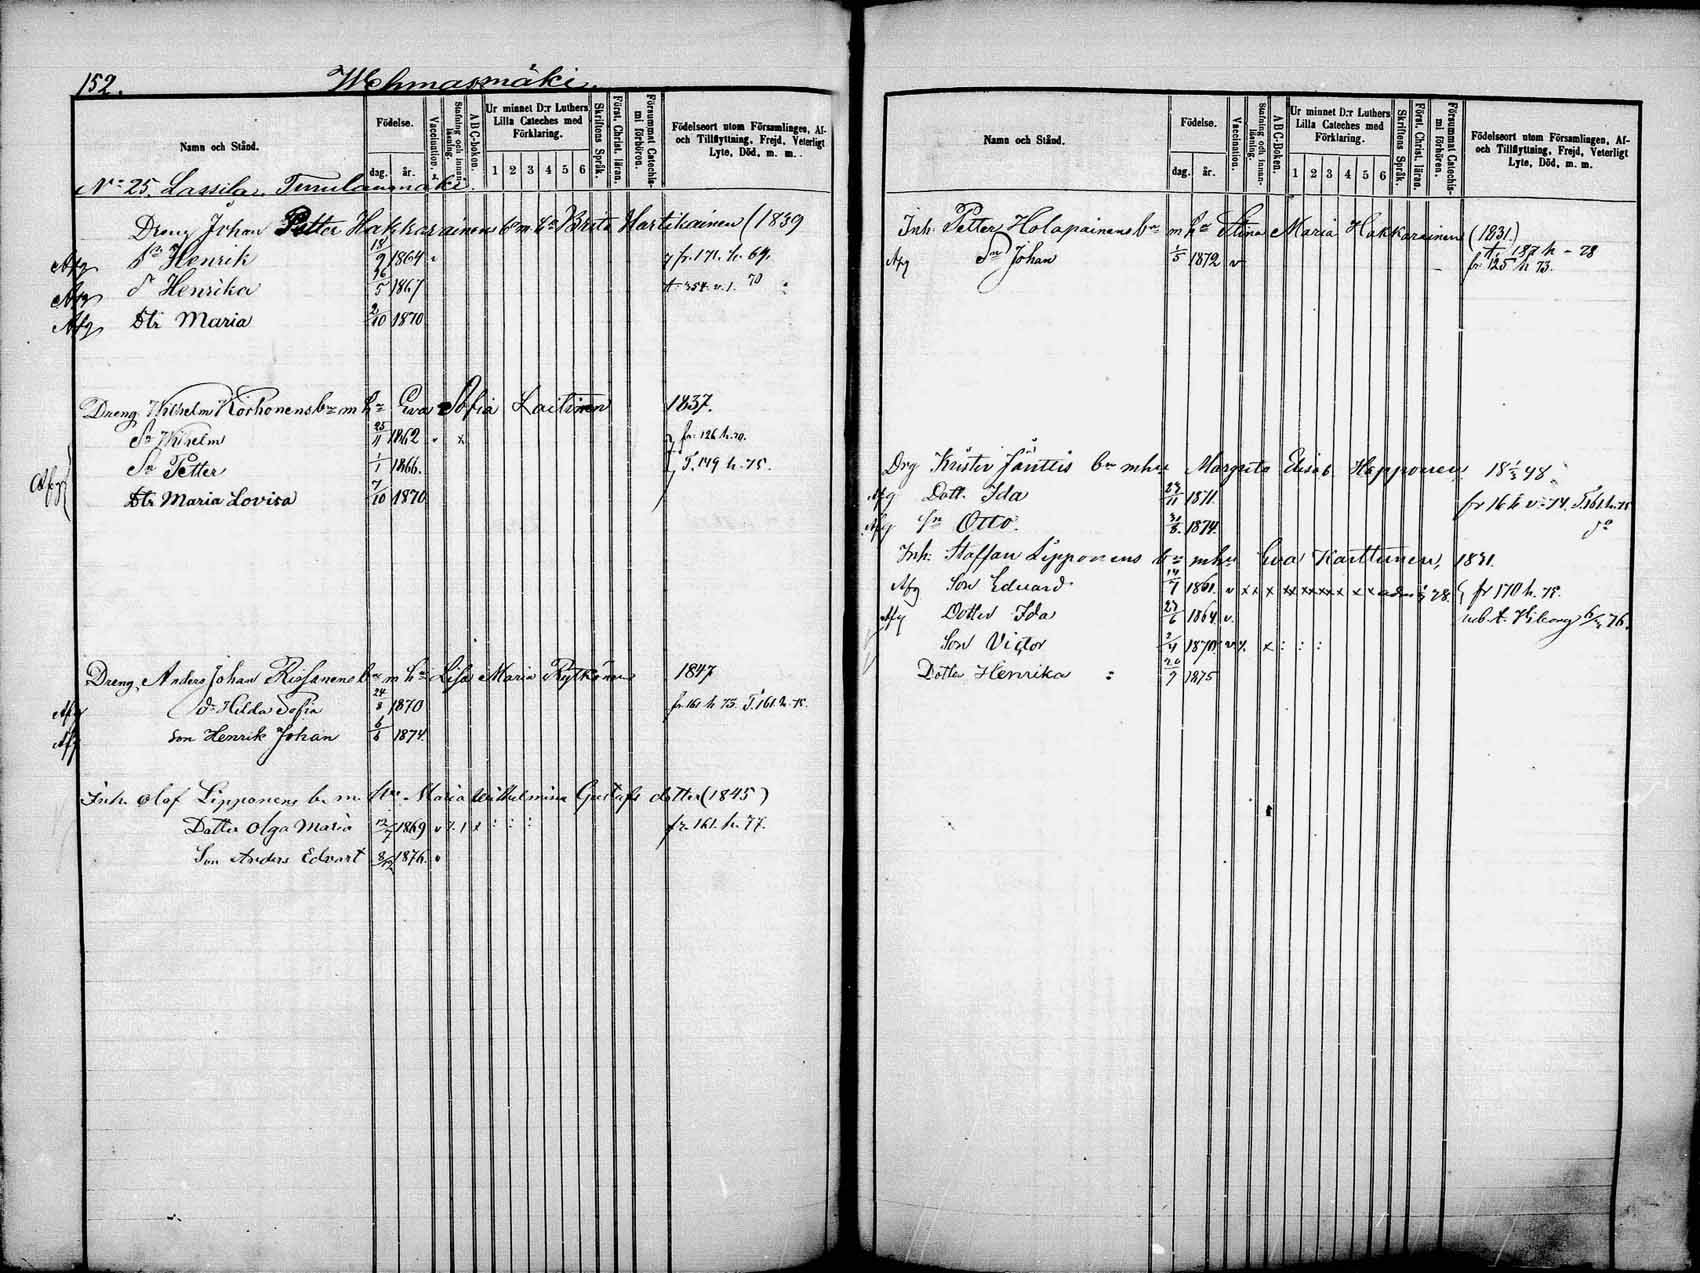 152. Wehmasmäki.
Namn och Stånd.
Födelse.
dag. år.
Vaccination.
Stafning och innan-läsning.
ABC-boken.
Ur minnet D:r Luthers Lilla Cateches med Förklaring.
1 2 3 4 5 6
Skriftens Språk.
Först. Christ. läran.
Försummat Catechis-mi förhören.
Födelseort utom Församlingen, Af- och Tillflyttning, Frejd, Veterligt Lyte, Död, m. m.
No 25. Lassila,
Dreng Johan Petter Hakkarainens b m ha Brita Hartikainen (1839
Afg Sn Henrik 18/9 1864 fr. 171. h. 69.
Afg Henrika 26/5 1867 354. v. 1. 70
Afg Dtr Maria 2/10 1870
Dreng Wilhelm Korhonens bn m ha Eva Sofia Laitinen 1837.
Sn Wilhelm 25/11 1862 x fr. 126 h. 70.
Afg Sn Petter 1/1 1866. T. 149 h. 75.
Dtr Maria Lovisa 7/10 1870
Dreng Anders Johan Rissanens bn m ha Lisa Maria Rytkönen 1847
Afg Dr Hilda Sofia 24/8 1870 fr 161 h 73. T. 161. h. 75.
Afg Son Henrik Johan 6/6 1874.
Inh. Olof Lipponens b. m. Hu. Maria Wilhelmina Gustafs dotter (1845)
Dotter Olga Maria 12/7 1869 v x 1 x : : : fr. 161. h. 77.
Son Anders Edvart 8/12 1876. v
Namn och Stånd.
Födelse.
dag. år.
Vaccination.
Stafning och innan-läsning.
ABC-boken.
Ur minnet D:r Luthers Lilla Cateches med Förklaring.
1 2 3 4 5 6
Skriftens Språk.
Först. Christ. läran.
Försummat Catechis-mi förhören.
Födelseort utom Församlingen, Af- och Tillflyttning, Frejd, Veterligt Lyte, Död, m. m.
Inh. Petter Holapainens bn m ha Stina Maria Hakkarainen (1831.)
187 h - 78
Afg Sn Johan 1/5 1872 v fr 125 h 73.
Drg Krister Jänttis bn m hu Margreta Elisab. Hepponen, 18 48.
Afg Dott. Ida 27/11 1871. fr 16 h v. 74. T. 161 h. 75
Afg Sn Otto. 1874. do
Inh. Staffan Lipponens bn m hu Eva Karttunen, 1831.
Afg Son Eduard 14/7 1861. v x x x xx xx xx x x x 78. fr 170 h. 75.
Afg Dotter Ida 27/6 1864. v. Wiborg 6/3 76.
Son Victor 2/4 1870. v x x : : :
Dotter Henrika : 20/9 1875